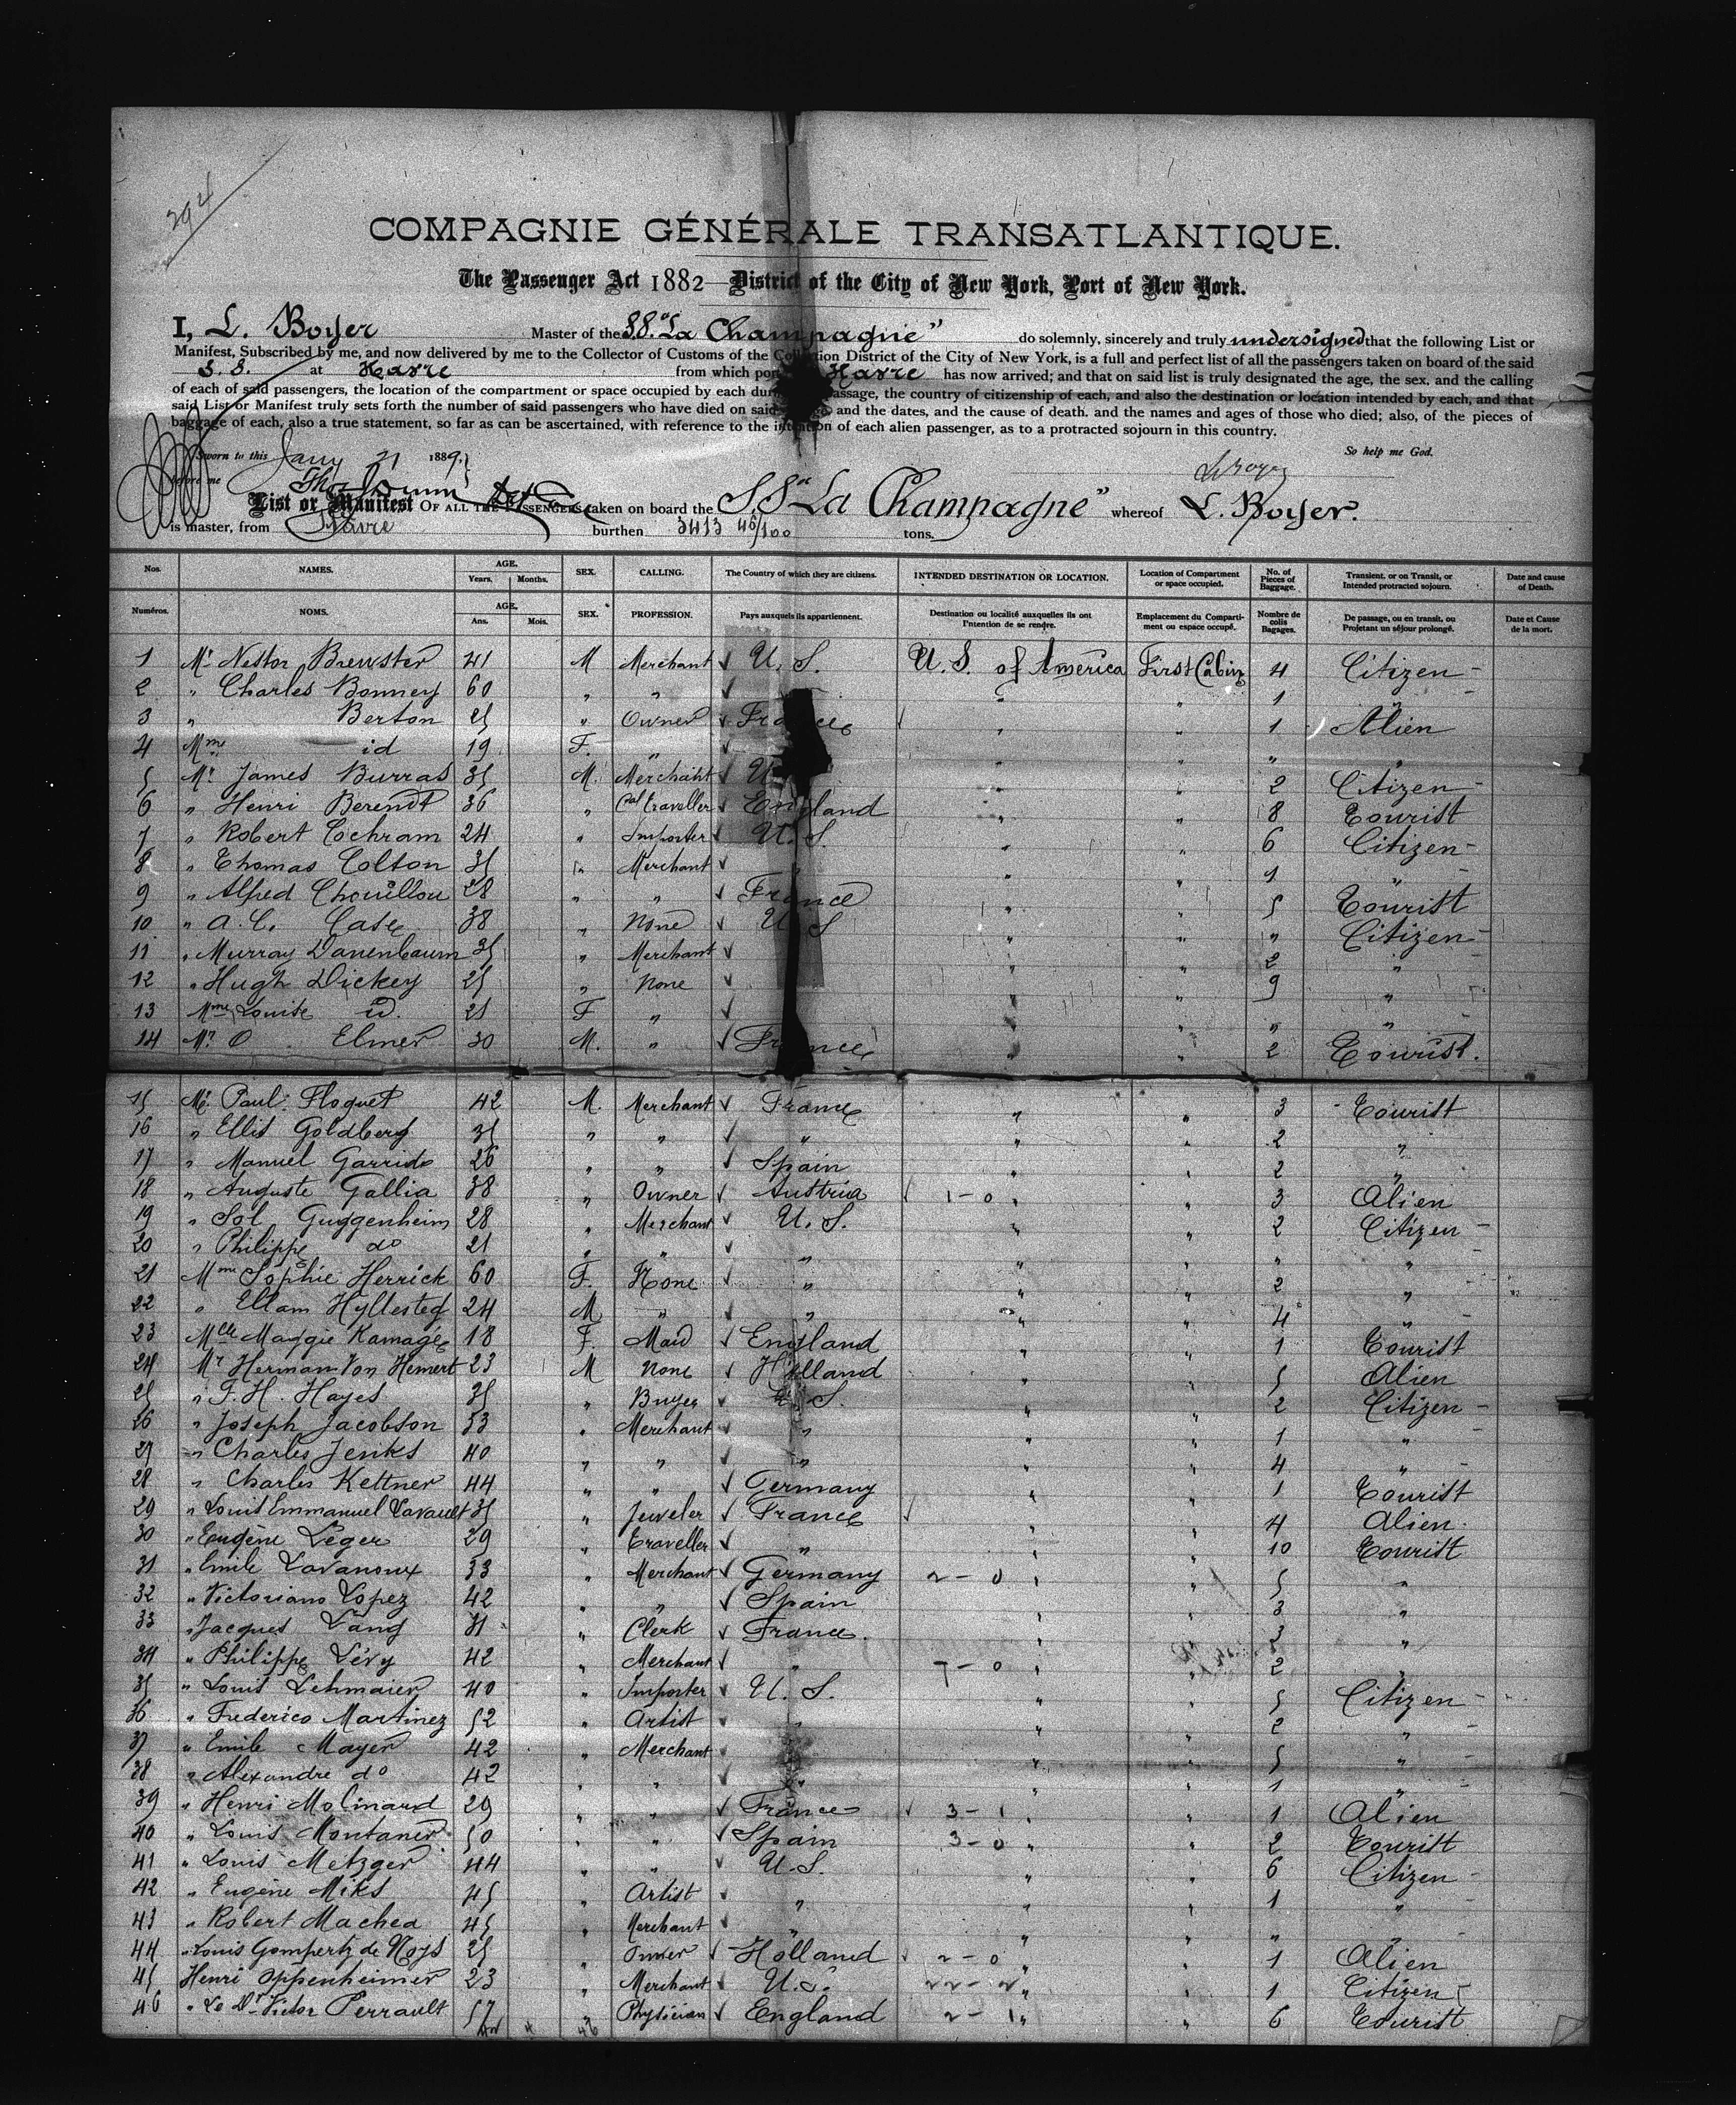 294
COMPAGNIE GÉNÉRALE TRANSATLANTIQUE.
The Passenger Act 1882 — District of the City of New York, Port of New York.
I, L. Boyer Master of the SS. "La Champagne" do solemnly, sincerely and truly undersigned that the following List or
Manifest, Subscribed by me, and now delivered by me to the Collector of Customs of the Collection District of the City of New York, is a full and perfect list of all the passengers taken on board of the said
S. S. at Havre from which port Havre has now arrived; and that on said list is truly designated the age, the sex, and the calling
of each of said passengers, the location of the compartment or space occupied by each during passage, the country of citizenship of each, and also the destination or location intended by each, and that
said List or Manifest truly sets forth the number of said passengers who have died on said and the dates, and the cause of death. and the names and ages of those who died; also, of the pieces of
baggage of each, also a true statement, so far as can be ascertained, with reference to the intention of each alien passenger, as to a protracted sojourn in this country.
Sworn to this Jany 21 1889. So help me God.
before me
List or Manifest OF ALL THE PASSENGERS taken on board the S.S "La Champagne" whereof L. Boyer.
is master, from Havre burthen 3413 46/100 tons.
Nos. NAMES. AGE. Years. Months. SEX. CALLING. The Country of which they are citizens. INTENDED DESTINATION OR LOCATION. Location of Compartment or space occupied. No. of Pieces of Baggage. Transient, or on Transit, or Intended protracted sojourn. Date and cause of Death.
Numéros. NOMS. AGE. Ans. Mois. SEX. PROFESSION. Pays auxquels ils appartiennent. Destination ou localité auxquelles ils ont l'intention de se rendre. Emplacement du Compartiment ou espace occupé. Nombre de colis Bagages. De passage, ou en transit, ou Projetant un séjour prolongé. Date et Cause de la mort.
1 Mr Nestor Brewster 41 M Merchant √ U. S. U. S. of America First Cabin 4 Citizen -
2 " Charles Bonney 60 " " √ " " 1 "
3 " Berton 25 " Owner √ France √ " " 1 Alien
4 Mme id 19 F. " √ " " " "
5 Mr James Burras 35 M. Merchant √ U " " 2 Citizen -
6 " Henri Berendt 36 " Cal traveller √ England " " 8 Tourist
7 " Robert Cochram 24 " Importer √ U. S. " " 6 Citizen -
8 " Thomas Colton 35 " Merchant √ " " 1 "
9 " Alfred Chouillou 28 " " √ France " " 5 Tourist
10 " A. C. Case 38 " None √ U S " " " Citizen -
11 " Murray Danenbaum 35 " Merchant √ " " 2 "
12 " Hugh Dickey 25 " None √ " " 9 "
13 Mme Louise id. 21 F " √ " " " "
14 Mr. O Elmer 30 M. " √ France " " 2 Tourist.
15 Mr. Paul Floquet 42 M. Merchant √ France " " 3 Tourist
16 " Ellis Goldberg 35 " " √ " " " 2 "
17 " Manuel Garrido 26 " " √ Spain " " 2 "
18 " Auguste Gallia 38 " Owner √ Austria √ 1 - 0 " " 3 Alien
19 " Sol Guggenheim 28 " Merchant √ U. S. " " 2 Citizen -
20 " Philippe do 21 " " √ " " " " "
21 Mme Sophie Herrick 60 F. None √ " " " 2 "
22 " Ellam Hyllested 24 M " √ " " " 4 "
23 Mlle Maggie Ramage 18 F. Maid √ England " " 1 Tourist
24 Mr Herman Von Hemert 23 M None √ Holland " " 5 Alien
25 " F. H. Hayes 35 " Buyer √ U. S. " " 2 Citizen -
26 " Joseph Jacobson 53 " Merchant √ " " " 1 "
27 " Charles Jenks 40 " " √ " " " 4 "
28 " Charles Kettner 44 " " √ Germany " " 1 Tourist
29 " Louis Emmanuel Lavault 35 " Jeweler √ France √ " " 4 Alien.
30 " Eugène Léger 29 " Traveller √ " " " 10 Tourist
31 " Emile Lavanoux 33 " Merchant √ Germany 2 - 0 " " 5 "
32 " Victoriano Lopez 42 " " √ Spain " " 3 "
33 " Jacques Lang 31 " Clerk √ France. " " 3 "
34 " Philippe Lévy 42 " Merchant √ " 7 - 0 " " 2 "
35 " Louis Lehmaier 40 " Importer √ U. S. " " 5 Citizen -
36 " Frederico Martinez 52 " Artist √ " " " 2 "
37 " Emile Mayer 42 " Merchant √ " " " 5 "
38 " Alexandre do 42 " " √ " " " 1 "
39 " Henri Molinard 29 " " √ France √ 3 - 1 " " 1 Alien
40 " Louis Montaner 50 " " √ Spain 3 - 0 " " 2 Tourist
41 " Louis Metzger 44 " " √ U. S. " " 6 Citizen -
42 " Eugène Miks 45 " Artist √ " " " 1 "
43 " Robert Machea 45 " Merchant " " " " "
44 " Louis Gompertz de Noys 25 " Owner √ Holland √ 2 - 0 " 1 Alien
45 Henri Oppenheimer 23 " Merchant √ U. S. 22 - 2 " " 1 Citizen -
46 " Le Dr. Victor Perrault 57 " Physician √ England 2 - 1 " " 6 Tourist
46